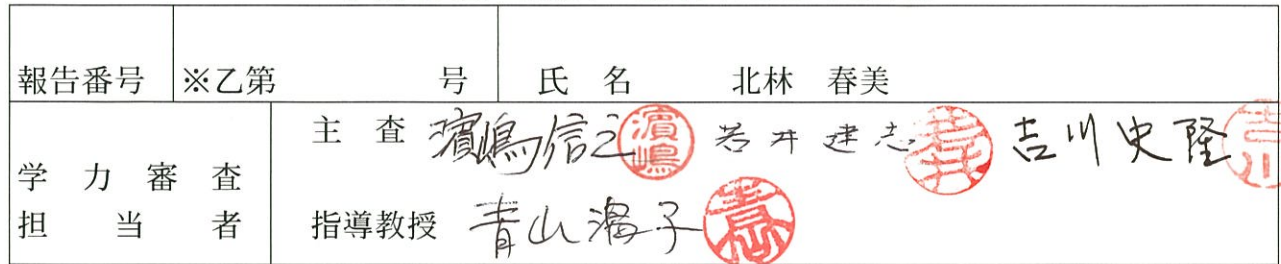 報告番号 ※乙第 号 氏名 北林 春美
学力審査担当者 主査 濵嶋信之 濵嶋 若井建志 若井 吉川史隆 吉川
指導教授 青山温子 青山